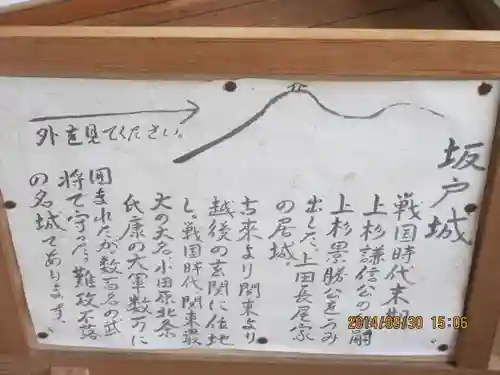 外を見てください。
坂戸城
戦国時代末期
上杉謙信公の
上杉景勝公をうみ
出した、上田長尾家
の居城。
古来より関東より
越後の玄関に位地
し、戦国時代関東最
大の大名、小田原北条
氏康の大軍数万に
囲まれたが数百名の武
将で守った、難攻不落
の名城であります。
2014/08/30 15:06